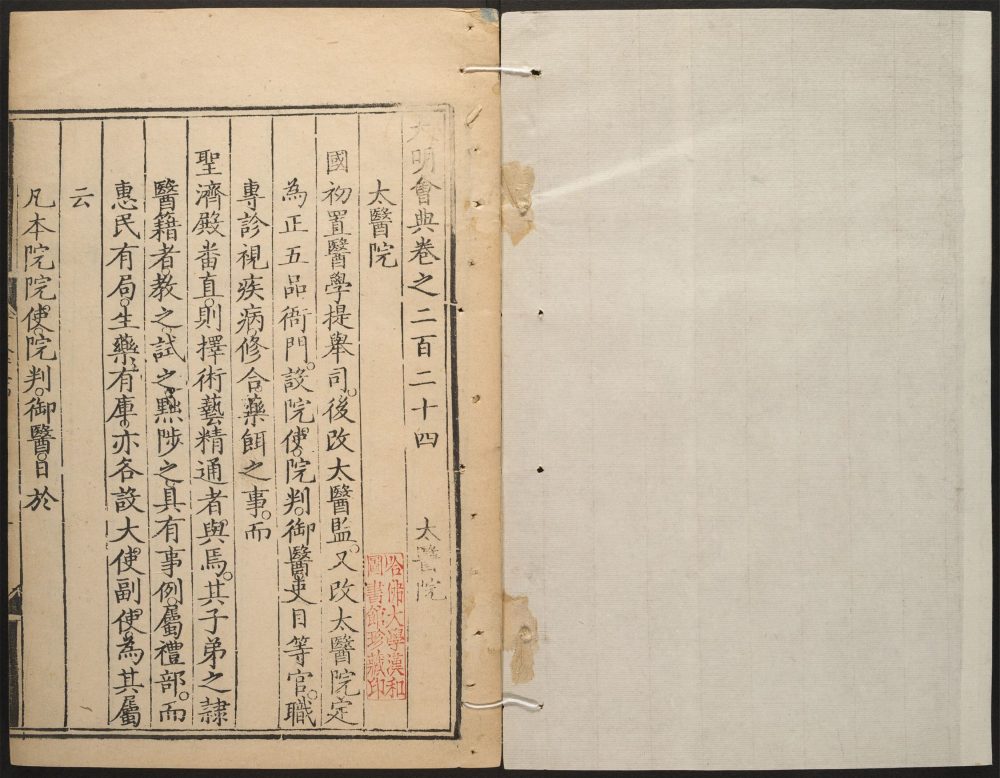 大明會典卷之二百二十四 太醫院
太醫院
國初置醫學提舉司。後改太醫監。又改太醫院定
為正五品衙門。設院使。院判。御醫吏目等官。職
專診視疾病。修合藥餌之事。而
聖濟殿畨直。則擇術藝精通者與焉。其子弟之隷
醫籍者。教之。試之。黜陟之。具有事例。屬禮部。而
惠民有局。生藥有庫。亦各設大使副使為其屬
云
凡本院院使。院判。御醫。日於
哈佛大學漢和
圖書館珍藏印